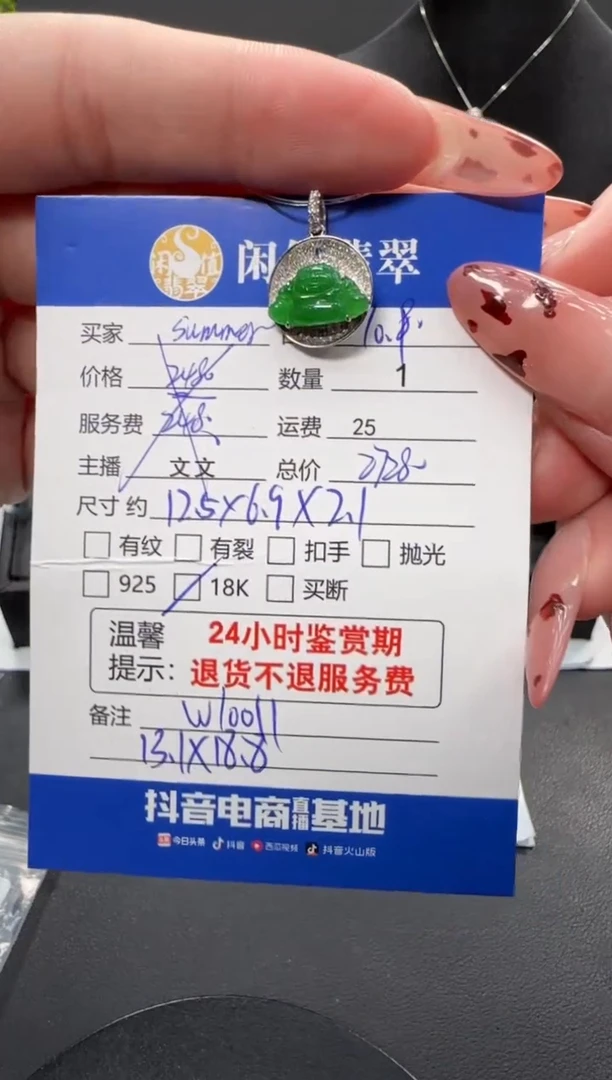 闲值翡翠
闲值翡翠
买家 Summer 10.8.
价格 2480 数量 1
服务费 248 运费 25
主播 文文 总价 2728
尺寸 约 12.5X6.9X2.1
有纹 有裂 扣手 抛光
925 18K 买断
温馨 24小时鉴赏期
提示: 退货不退服务费
备注 W10011
13.1X18.8
抖音电商直播基地
今日头条 抖音 西瓜视频 抖音火山版